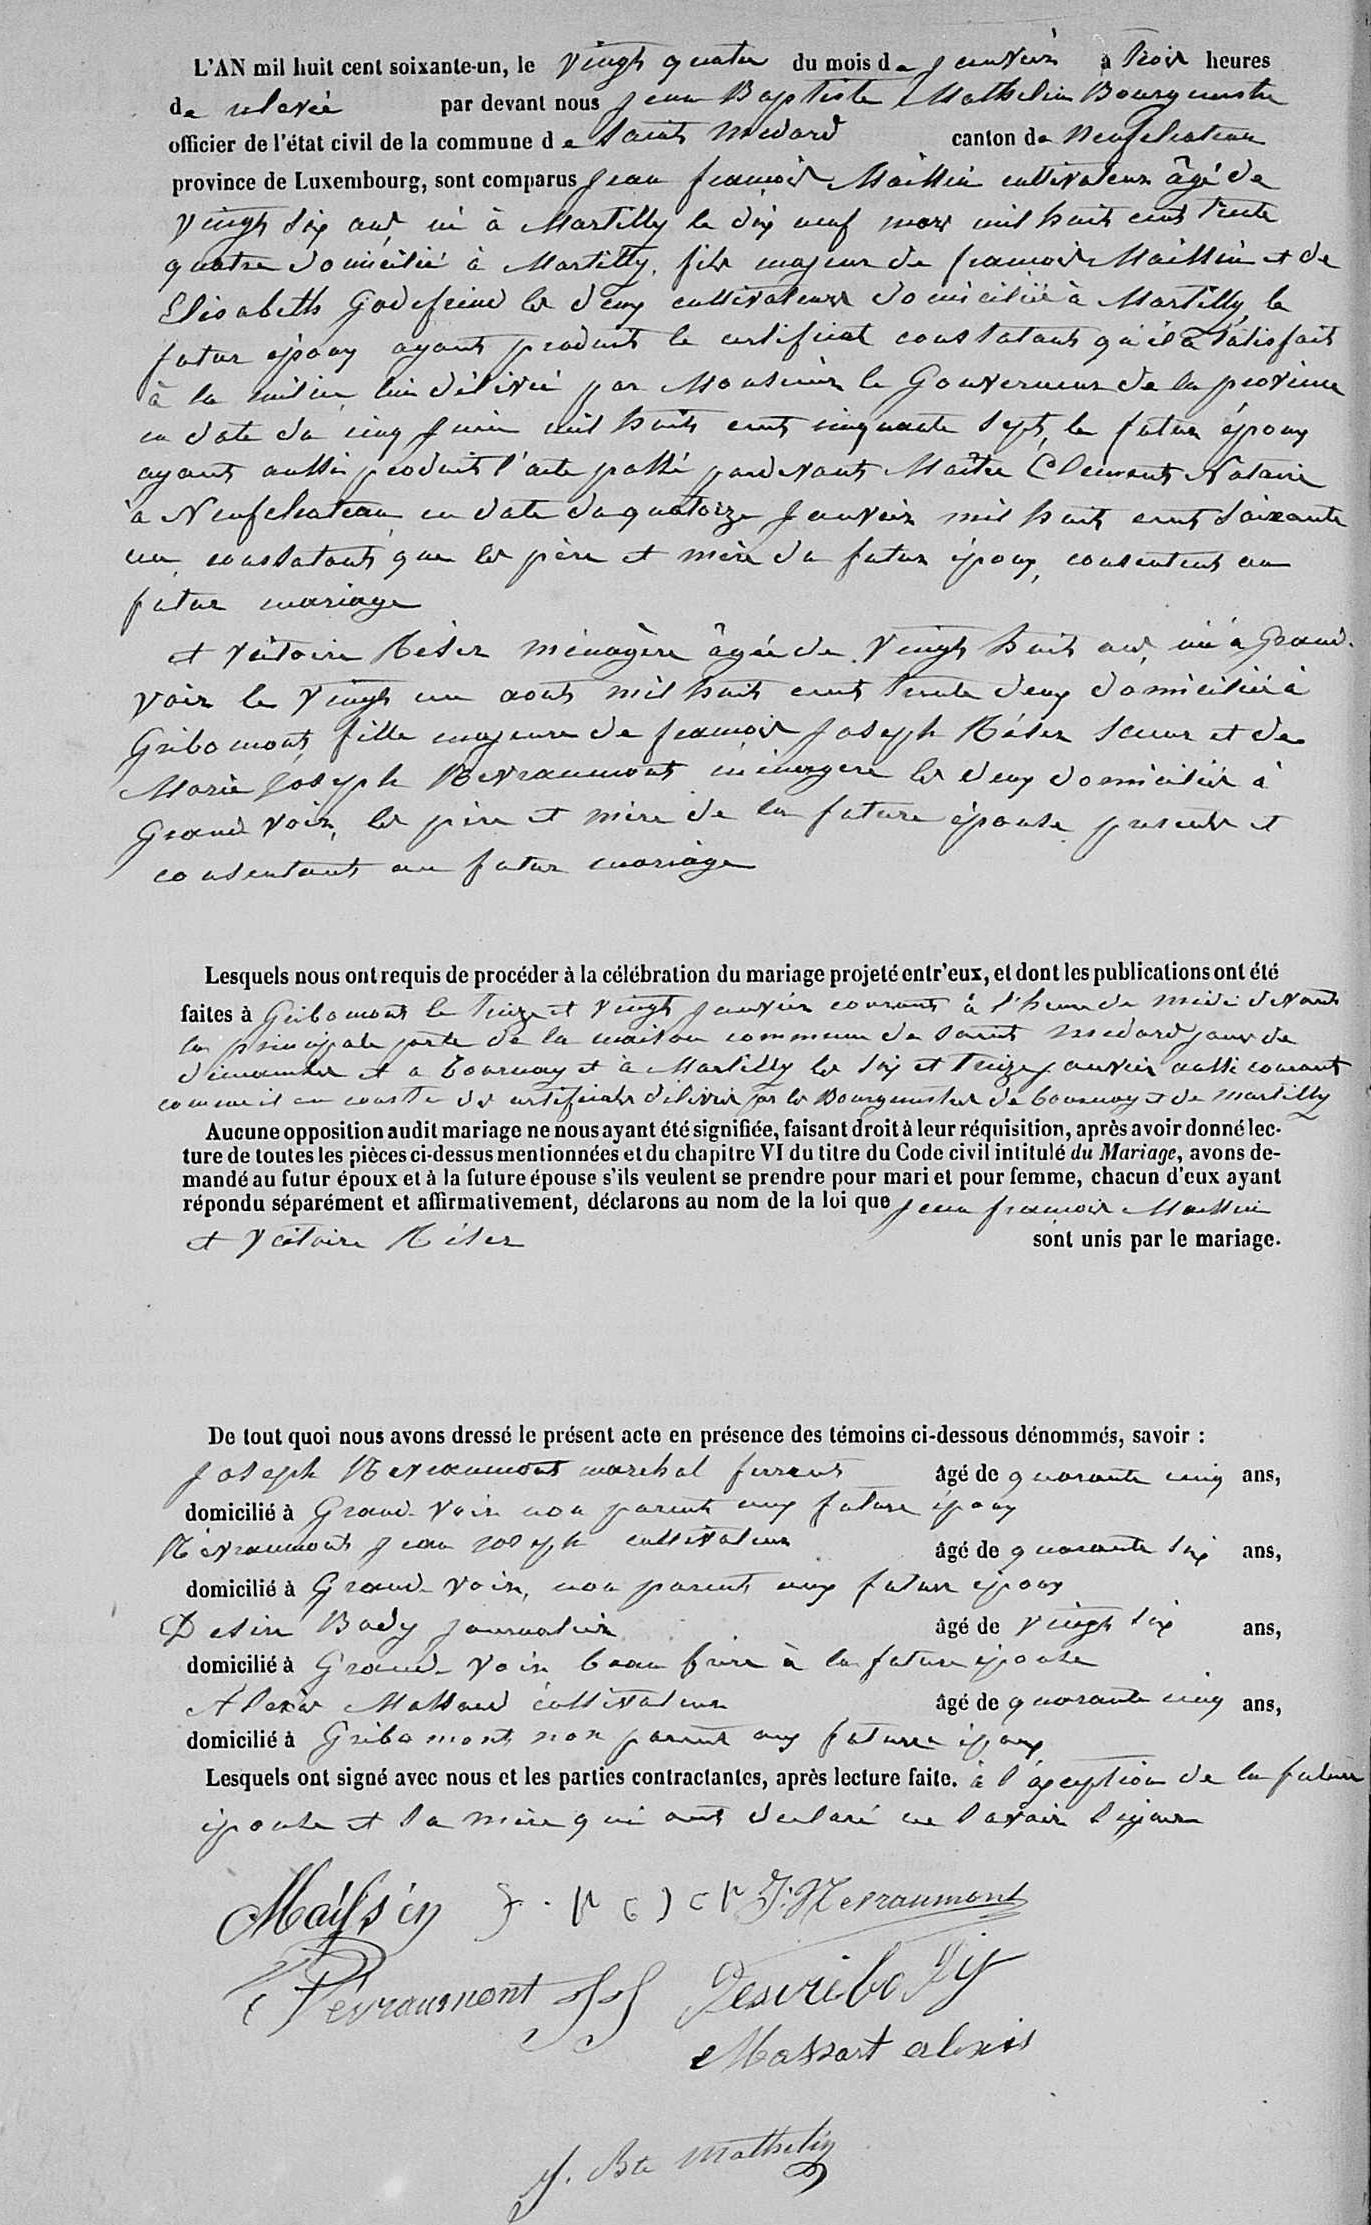 L'AN mil huit cent soixante-un, le vingt quatre du mois de janvier à trois heures
de relevée par devant nous Jean Baptiste Mathelin Bourgmestre
officier de l'état civil de la commune de Saint Medard canton de Neufchateau
province de Luxembourg, sont comparus Jean françois Maissin cultivateur âgé de
vingt six ans, né à Martilly le dix neuf mars mil huit cent trente
quatre domicilié à Martilly, fils majeur de françois Maissin et de
Elisabeth Godefrind les deux cultivateurs domiciliés à Martilly, le
futur époux ayant produit le certificat constatant qu'il a satisfait
à la milice lui délivré par Monsieur le Gouverneur de la province
en date du cinq juin mil huit cent cinquante sept, le futur époux
ayant aussi produit l'acte passé pardevant Maître Clement Notaire
à Neufchateau en date du quatorze janvier mil huit cent soixante
un constatant que les père et mère du futur époux, consentent au
futur mariage
et victoire ménagère âgée de vingt huit ans, née à Grand-
voir le vingt un aout mil huit cent trente deux domiciliée à
Gribomont, fille majeure de françois Joseph et de
Marie Joseph Nevraumont ménagere les deux domiciliés à
Grand voir, les père et mère de la future épouse presents et
consentant au futur mariage
Lesquels nous ont requis de procéder à la célébration du mariage projeté entr'eux, et dont les publications ont été
faites à Gribomont le treize et vingt janvier courant à l'heure de midi devant
la principale porte de la maison commune de Saint Medard jour de
dimanche et a Tournay et à Martilly les six et treize janvier aussi courant
comme il en conste des certificats délivrés par les Bourgmestres de Tournay et de Martilly
Aucune opposition audit mariage ne nous ayant été signifiée, faisant droit à leur réquisition, après avoir donné lec-
ture de toutes les pièces ci-dessus mentionnées et du chapitre VI du titre du Code civil intitulé du Mariage, avons de-
mandé au futur époux et à la future épouse s'ils veulent se prendre pour mari et pour femme, chacun d'eux ayant
répondu séparément et affirmativement, déclarons au nom de la loi que Jean françois Maissin
et victoire sont unis par le mariage.
De tout quoi nous avons dressé le présent acte en présence des témoins ci-dessous dénommés, savoir :
Joseph Nevraumont marechal ferrant âgé de quarante cinq ans,
domicilié à Grand-voir non parent aux futurs époux
Névraumont Jean Joseph cultivateur âgé de quarante six ans,
domicilié à Grand-voir, non parent aux futurs époux
Desire Body journalier âgé de vingt six ans,
domicilié à Grand-voir beau frère à la future épouse
Alexis Massard cultivateur âgé de quarante cinq ans,
domicilié à Gribomont non parent aux futurs époux
Lesquels ont signé avec nous et les parties contractantes, après lecture faite. à l'exception de la future
épouse et sa mère qui ont declaré ne savoir signer
Maissin J. Nevraumont
Névraumont JJ Desiré body
Massart alexis
J. Bte Mathelin